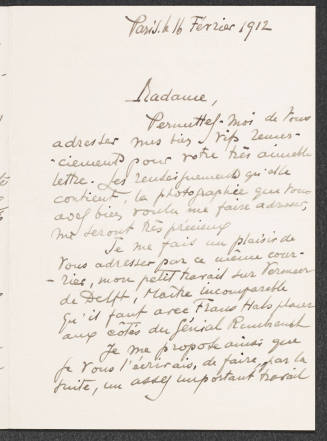 Paris, le 16 Février 1912
Madame,
Permettez-moi de vous
adresser mes très vifs remer-
ciements pour votre très aimable
lettre. Les renseignements qu'elle
contient, la photographie que vous
avez bien voulu me faire adresser,
me seront très précieux
Je me fais un plaisir de
vous adresser par ce même cour-
rier, mon petit travail sur Vermeer
de Delft, Maître incomparable
qu'il faut avec Frans Hals placer
aux côtés du Génial Rembrandt
Je me propose ainsi que
je vous l'écrivais, de faire, par la
suite, un assez important travail